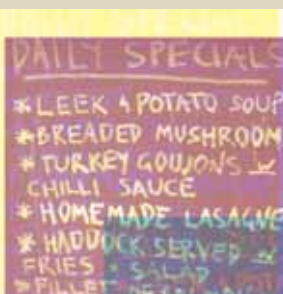 DAILY SPECIALS
* LEEK & POTATO SOUP
* BREADED MUSHROOM
* TURKEY GOUJONS W
CHILLI SAUCE
* HOMEMADE LASAGNE
* HADDOCK SERVED W
FRIES + SALAD